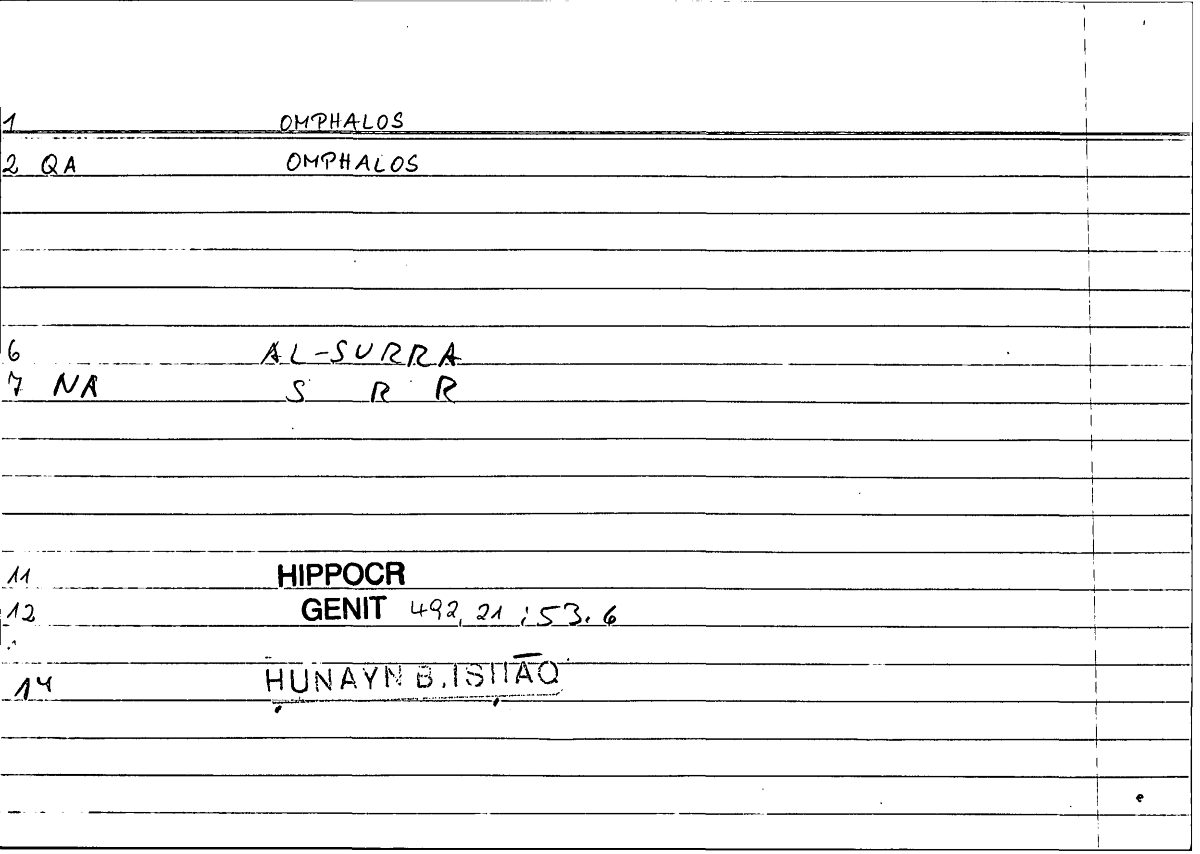 1 OMPHALOS
2 QA OMPHALOS
6 AL-SURRA
7 NA S R R
11 HIPPOCR
12 GENIT 492, 21 ; 53. 6
14 ḤUNAYN B. ISḤĀQ